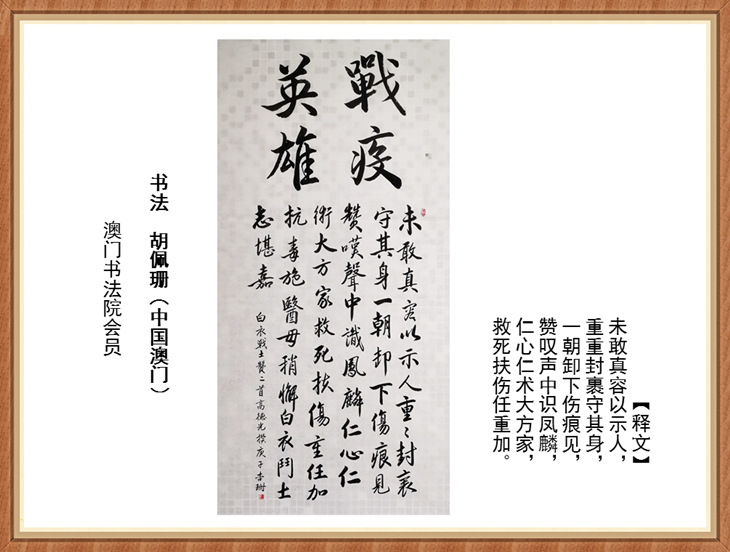 【释文】
未敢真容以示人，
重重封裹守其身，
一朝卸下伤痕见，
赞叹声中识凤麟，
仁心仁术大方家，
救死扶伤任重加。
戰疫
英雄
未敢真容以示人重〻封裹
守其身一朝卸下傷痕見
贊嘆聲中識鳳麟仁心仁
術大方家救死扶傷重任加
抗毒施醫毋稍懈白衣鬥士
志堪嘉
白衣戰士贊二首高德光撰庚子
书法 胡佩珊（中国澳门）
澳门书法院会员